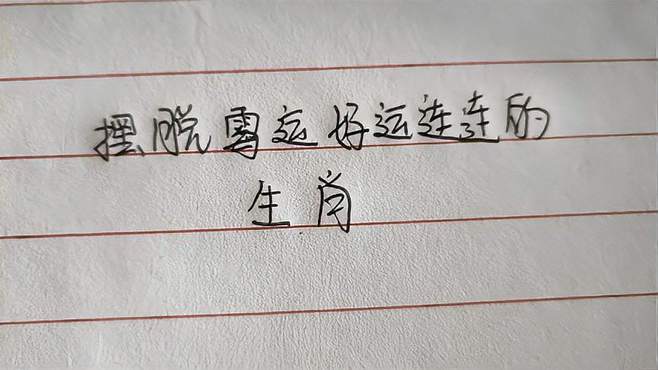 摆脱霉运好运连连的
生肖